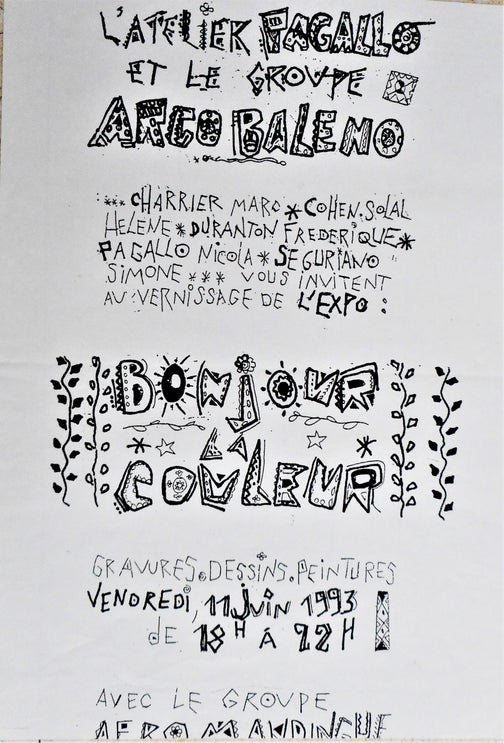 L'ATELIER PAGALLO
ET LE GROUPE
ARCO BALENO
*** CHARRIER MARC * COHEN.SOLAL
HELENE * DURANTON FREDERIQUE *
PAGALLO NICOLA * SEGURIANO
SIMONE *** VOUS INVITENT
AU VERNISSAGE DE L'EXPO :
BONJOUR
LA
COULEUR
GRAVURES.DESSINS.PEINTURES
VENDREDI, 11 JUIN 1993
DE 18H À 22H
AVEC LE GROUPE
AFRO MANDINGUE